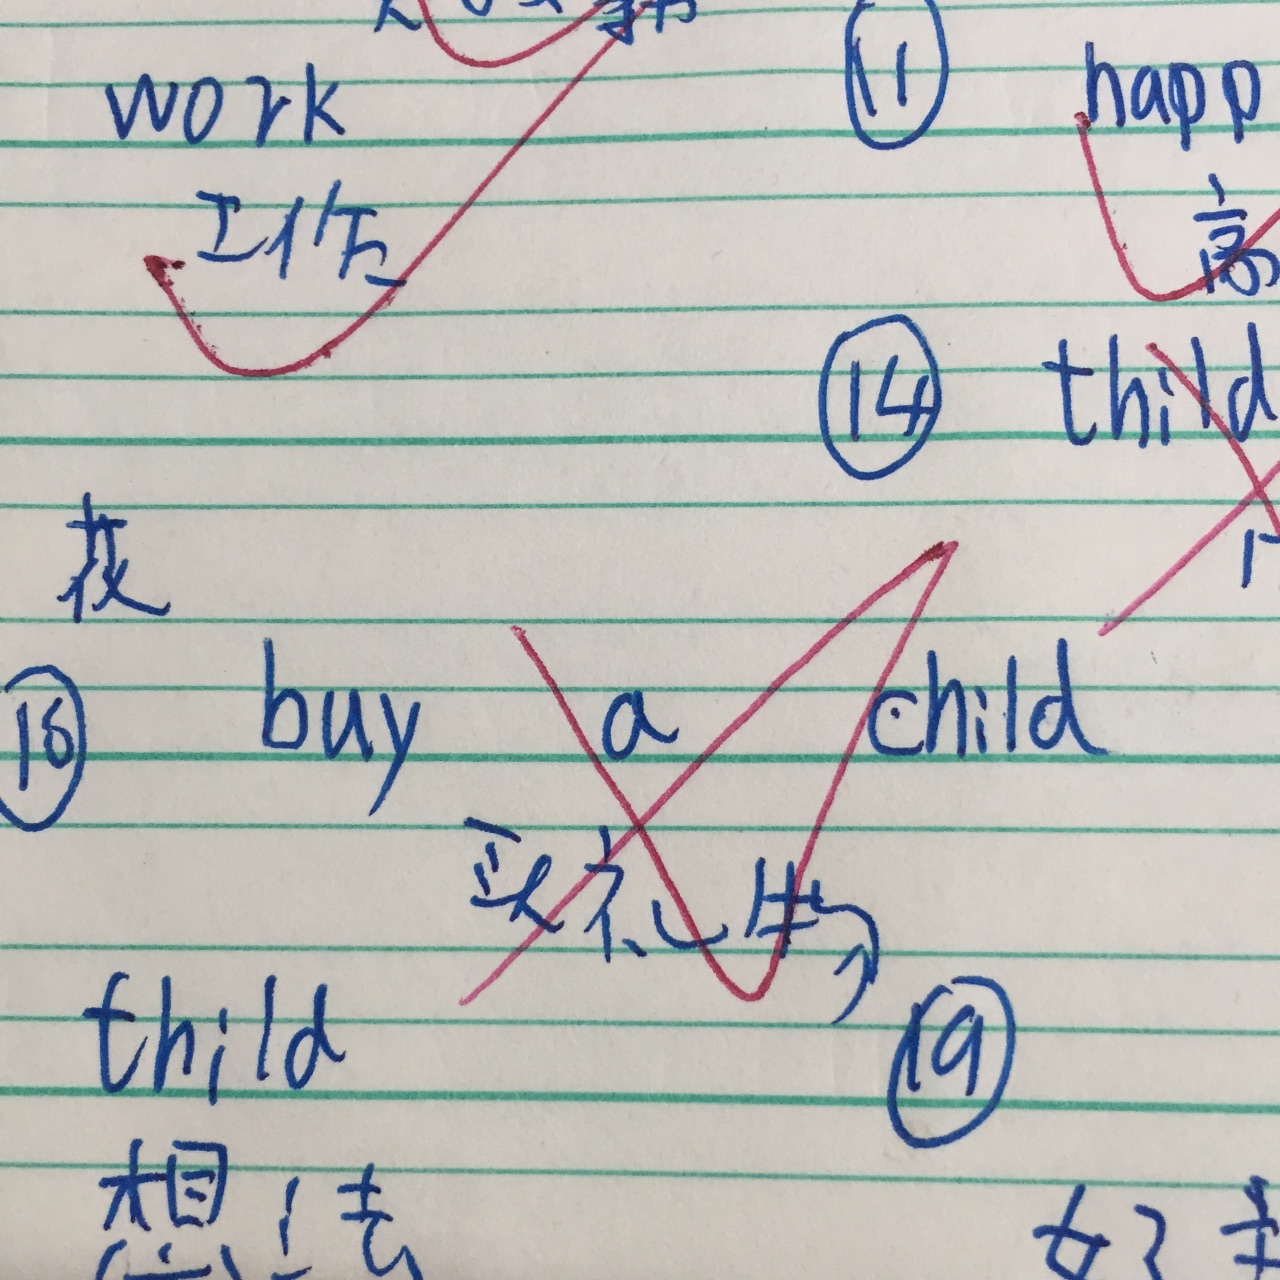 work
⑪ happ
工作
高
⑭ thild
夜
⑯ buy a child
买礼物
thild
⑲
想法